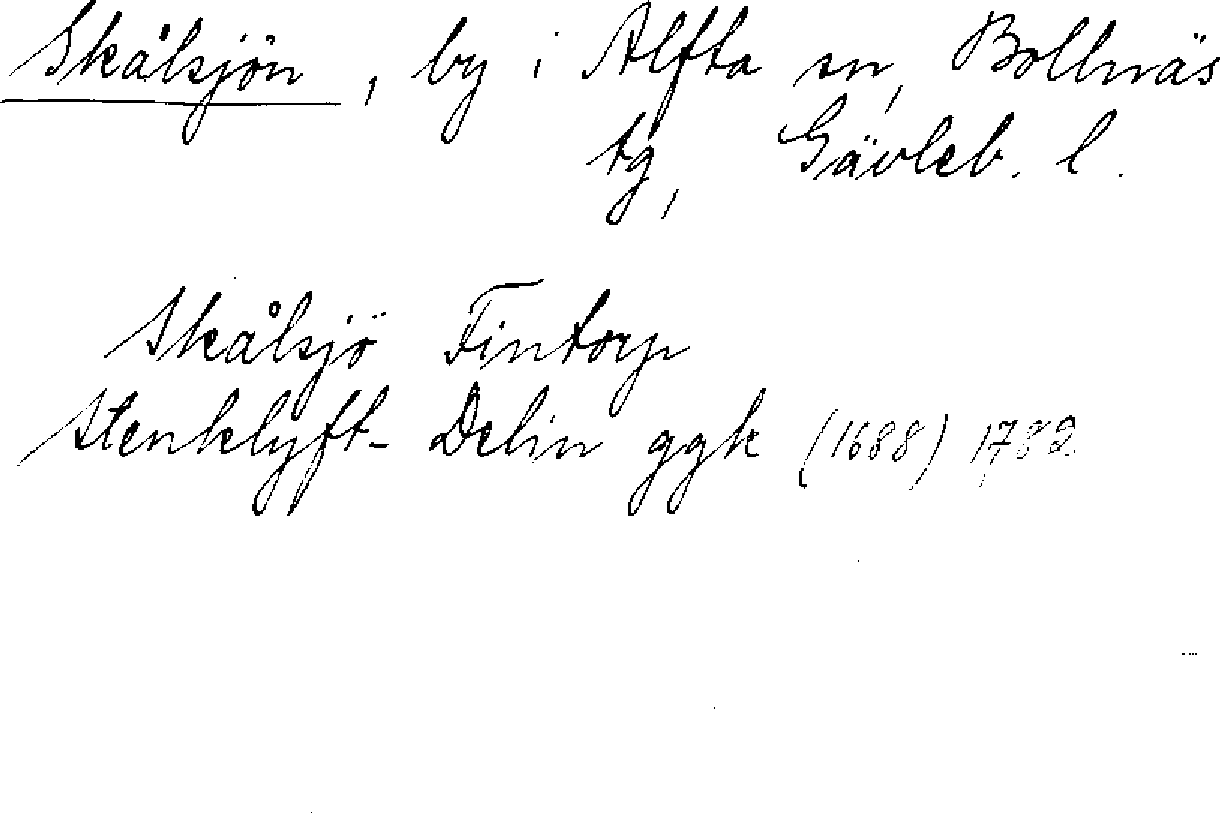 Skålsjön, by i Alfta sn, Bollnäs
tg, Gävleb. l.
Skålsjö Fintorp
Stenklyft- Delin ggk (1688) 1782